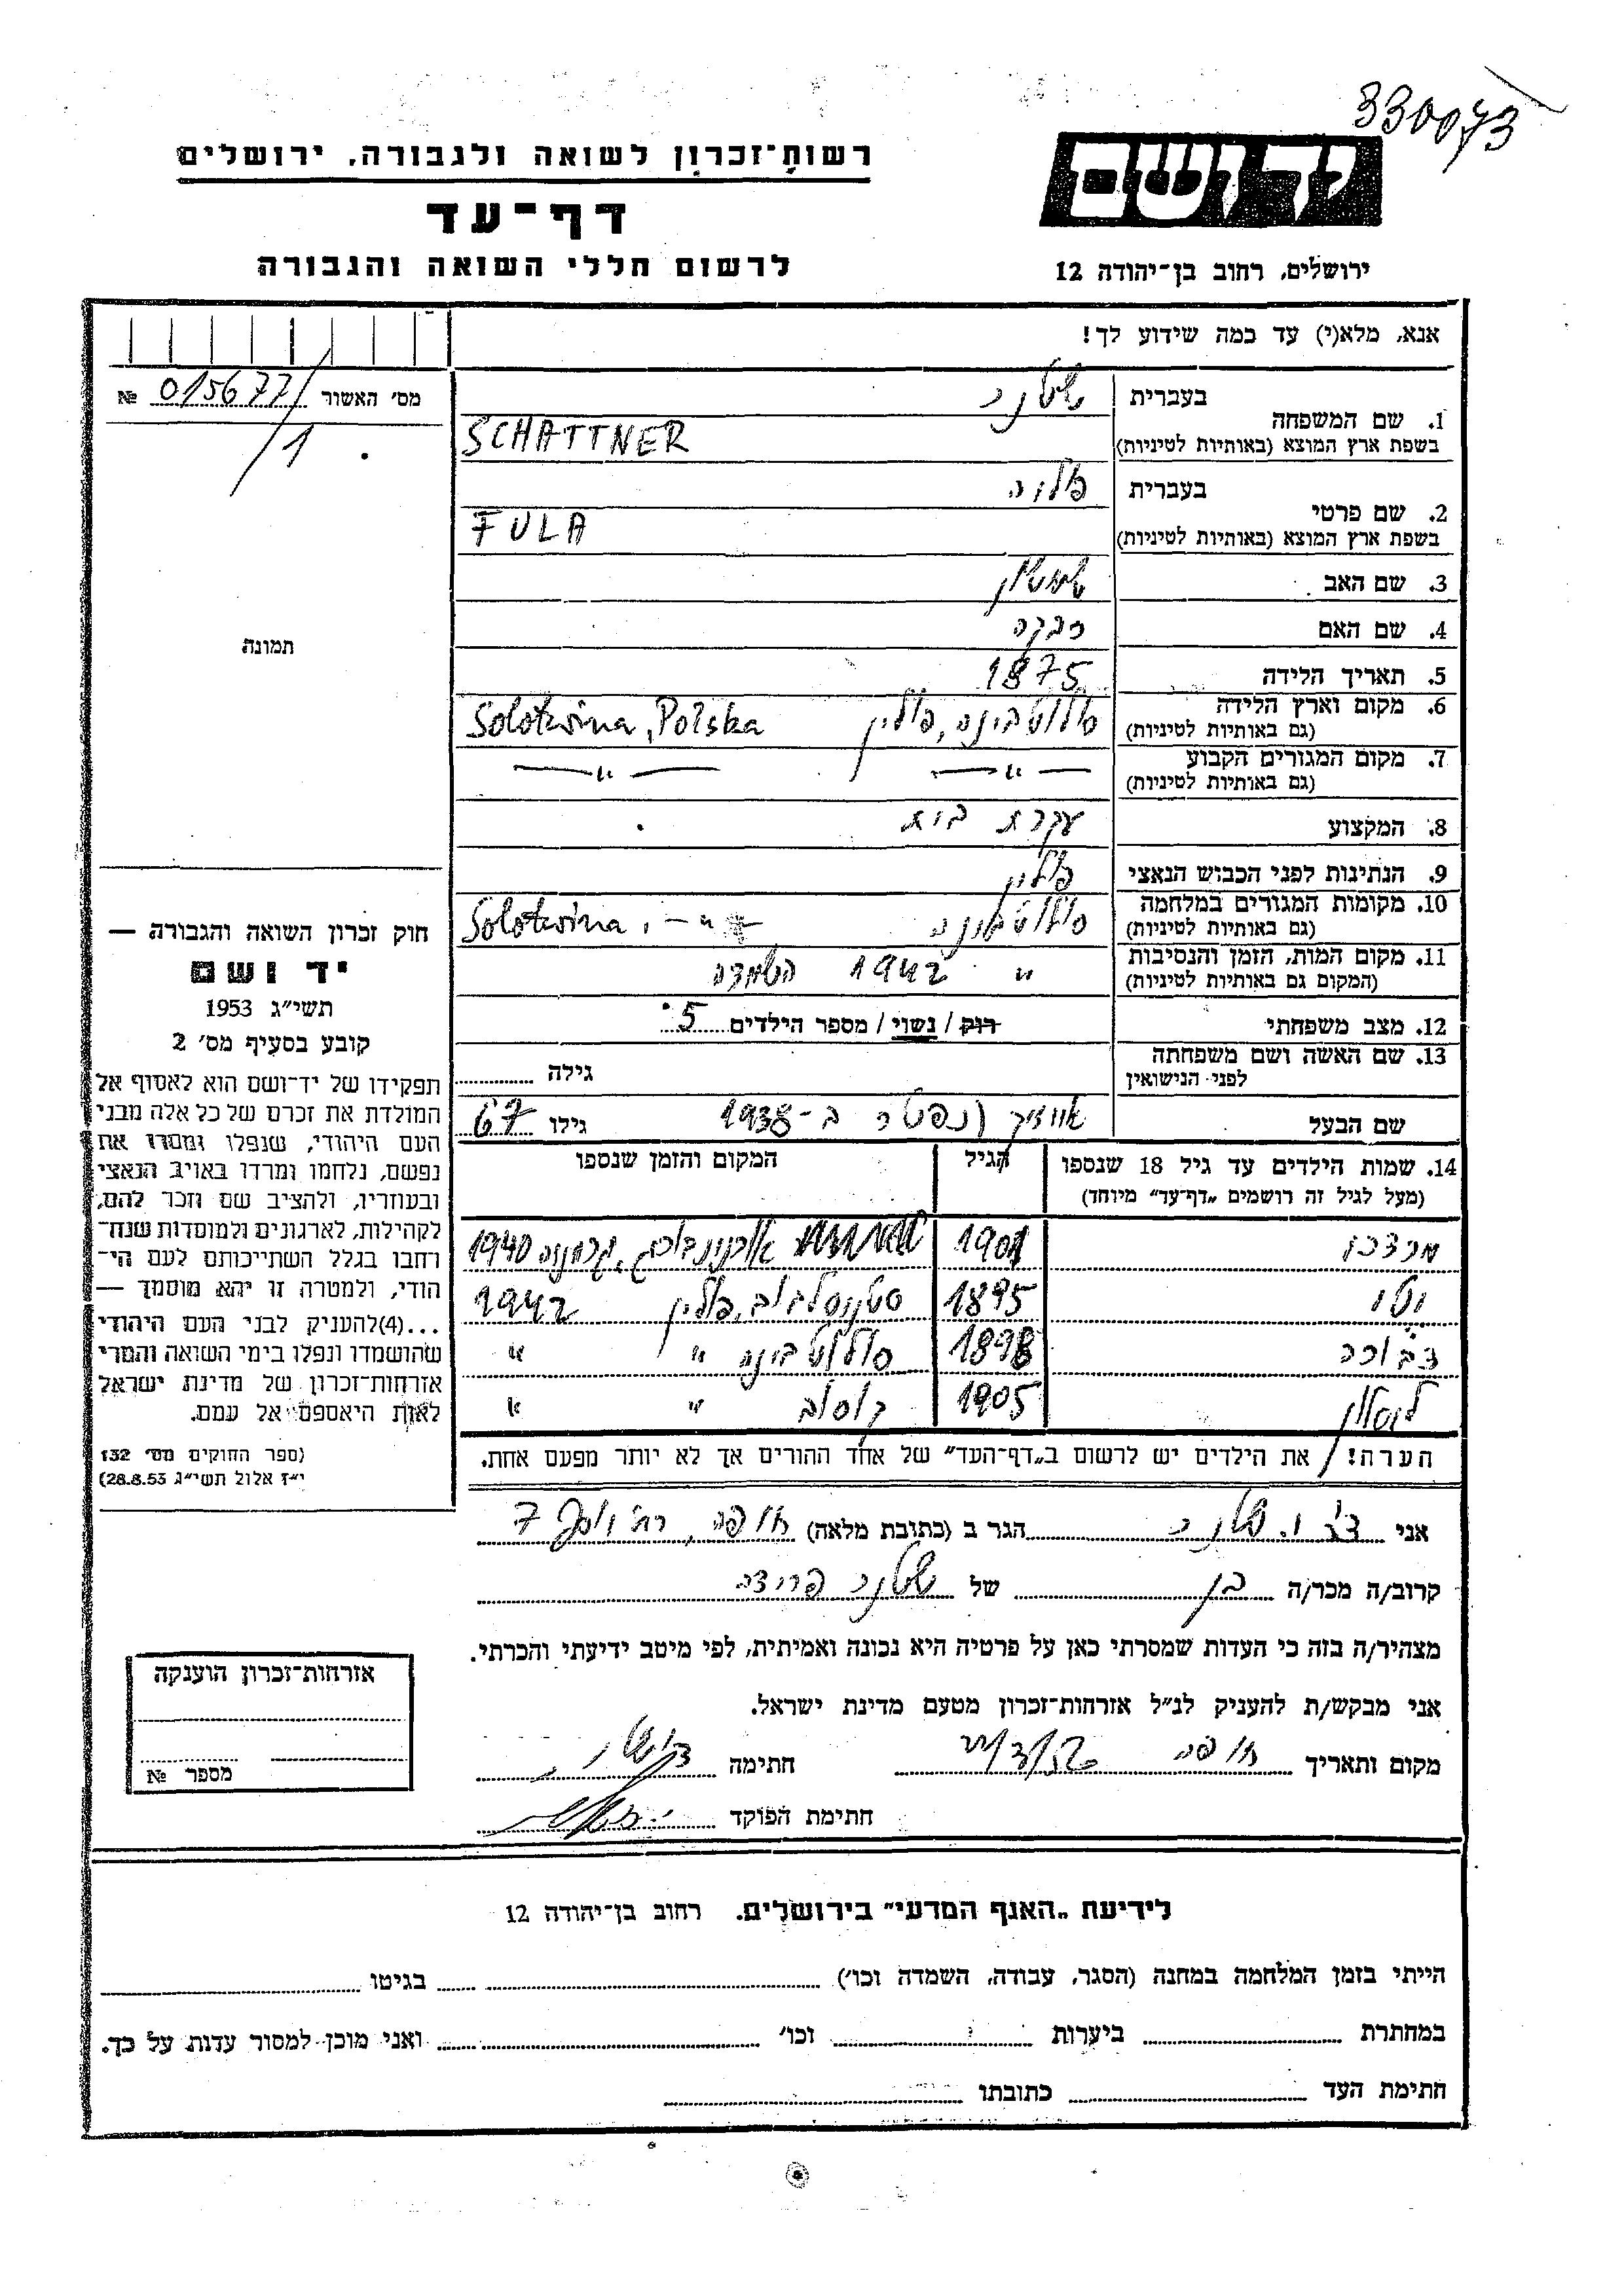 330073
יד ושם
רשות־זכרון לשואה ולגבורה, ירושלים
דף־עד
לרשום חללי השואה והגבורה
ירושלים, רחוב בן־יהודה 12
אנא, מלא(י) עד כמה שידוע לך!
מס׳ האשור 015677 №
/1
תמונה
1. שם המשפחה
בעברית שטנר
בשפת ארץ המוצא (באותיות לטיניות) SCHATTNER
2. שם פרטי
בעברית
בשפת ארץ המוצא (באותיות לטיניות) FULA
3. שם האב שמשון
4. שם האם רבקה
5. תאריך הלידה 1875
6. מקום וארץ הלידה סולוטבינה, פולין Solotwina, Polska
(גם באותיות לטיניות)
7. מקום המגורים הקבוע — " — — " —
(גם באותיות לטיניות)
8. המקצוע עקרת בית
9. הנתינות לפני הכבוש הנאצי פולין
10. מקומות המגורים במלחמה סולוטבינה Solotwina, — " —
(גם באותיות לטיניות)
11. מקום המות, הזמן והנסיבות " 1942 השמדה
(המקום גם באותיות לטיניות)
12. מצב משפחתי רוק / נשוי / מספר הילדים 5
13. שם האשה ושם משפחתה
לפני הנישואין
גילה
שם הבעל אייזיק (נפטר ב-1938 גילו 67
14. שמות הילדים עד גיל 18 שנספו הגיל המקום והזמן שנספו
(מעל לגיל זה רושמים „דף־עד״ מיוחד)
מרדכי 1901 גרמניה 1940
1895 סטניסלבוב, פולין 1942
דבורה 1898 סולוטבינה " "
1905 קוסוב " "
הערה! את הילדים יש לרשום ב„דף־העד״ של אחד ההורים אך לא יותר מפעם אחת.
אני שטנר הגר ב (כתובת מלאה) חיפה, 7
קרוב/ה מכר/ה בן של שטנר פרידה
מצהיר/ה בזה כי העדות שמסרתי כאן על פרטיה היא נכונה ואמיתית, לפי מיטב ידיעתי והכרתי.
אני מבקש/ת להעניק לנ״ל אזרחות־זכרון מטעם מדינת ישראל.
מקום ותאריך חיפה חתימה
חתימת הפוקד
חוק זכרון השואה והגבורה —
יד ושם
תשי״ג 1953
קובע בסעיף מס׳ 2
תפקידו של יד־ושם הוא לאסוף אל
המולדת את זכרם של כל אלה מבני
העם היהודי, שנפלו ומסרו את
נפשם, נלחמו ומרדו באויב הנאצי
ובעוזריו, ולהציב שם וזכר להם,
לקהילות, לארגונים ולמוסדות שנח־
רחבו בגלל השתייכותם לעם הי־
הודי, ולמטרה זו יהא מוסמך —
...(4)להעניק לבני העם היהודי
שהושמדו ונפלו בימי השואה והמרי
אזרחות־זכרון של מדינת ישראל
לאות היאספם אל עמם.
(ספר החוקים מס׳ 132
י״ז אלול תשי״ג 28.8.53)
אזרחות־זכרון הוענקה
מספר №
לידיעת „האגף המדעי״ בירושלים. רחוב בן־יהודה 12
הייתי בזמן המלחמה במחנה (הסגר, עבודה, השמדה וכו׳) בגיטו
במחתרת ביערות וכו׳ ואני מוכן למסור עדות על כך.
חתימת העד כתובתו